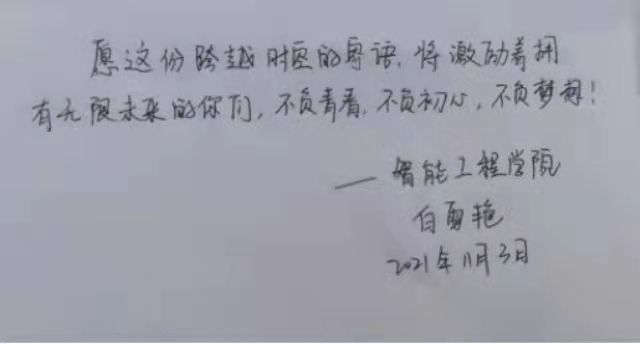 愿这份跨越时空的寄语,将激励着拥
有无限未来的你们,不负青春,不负初心,不负梦想!
——智能工程学院
白勇艳
2021年11月3日